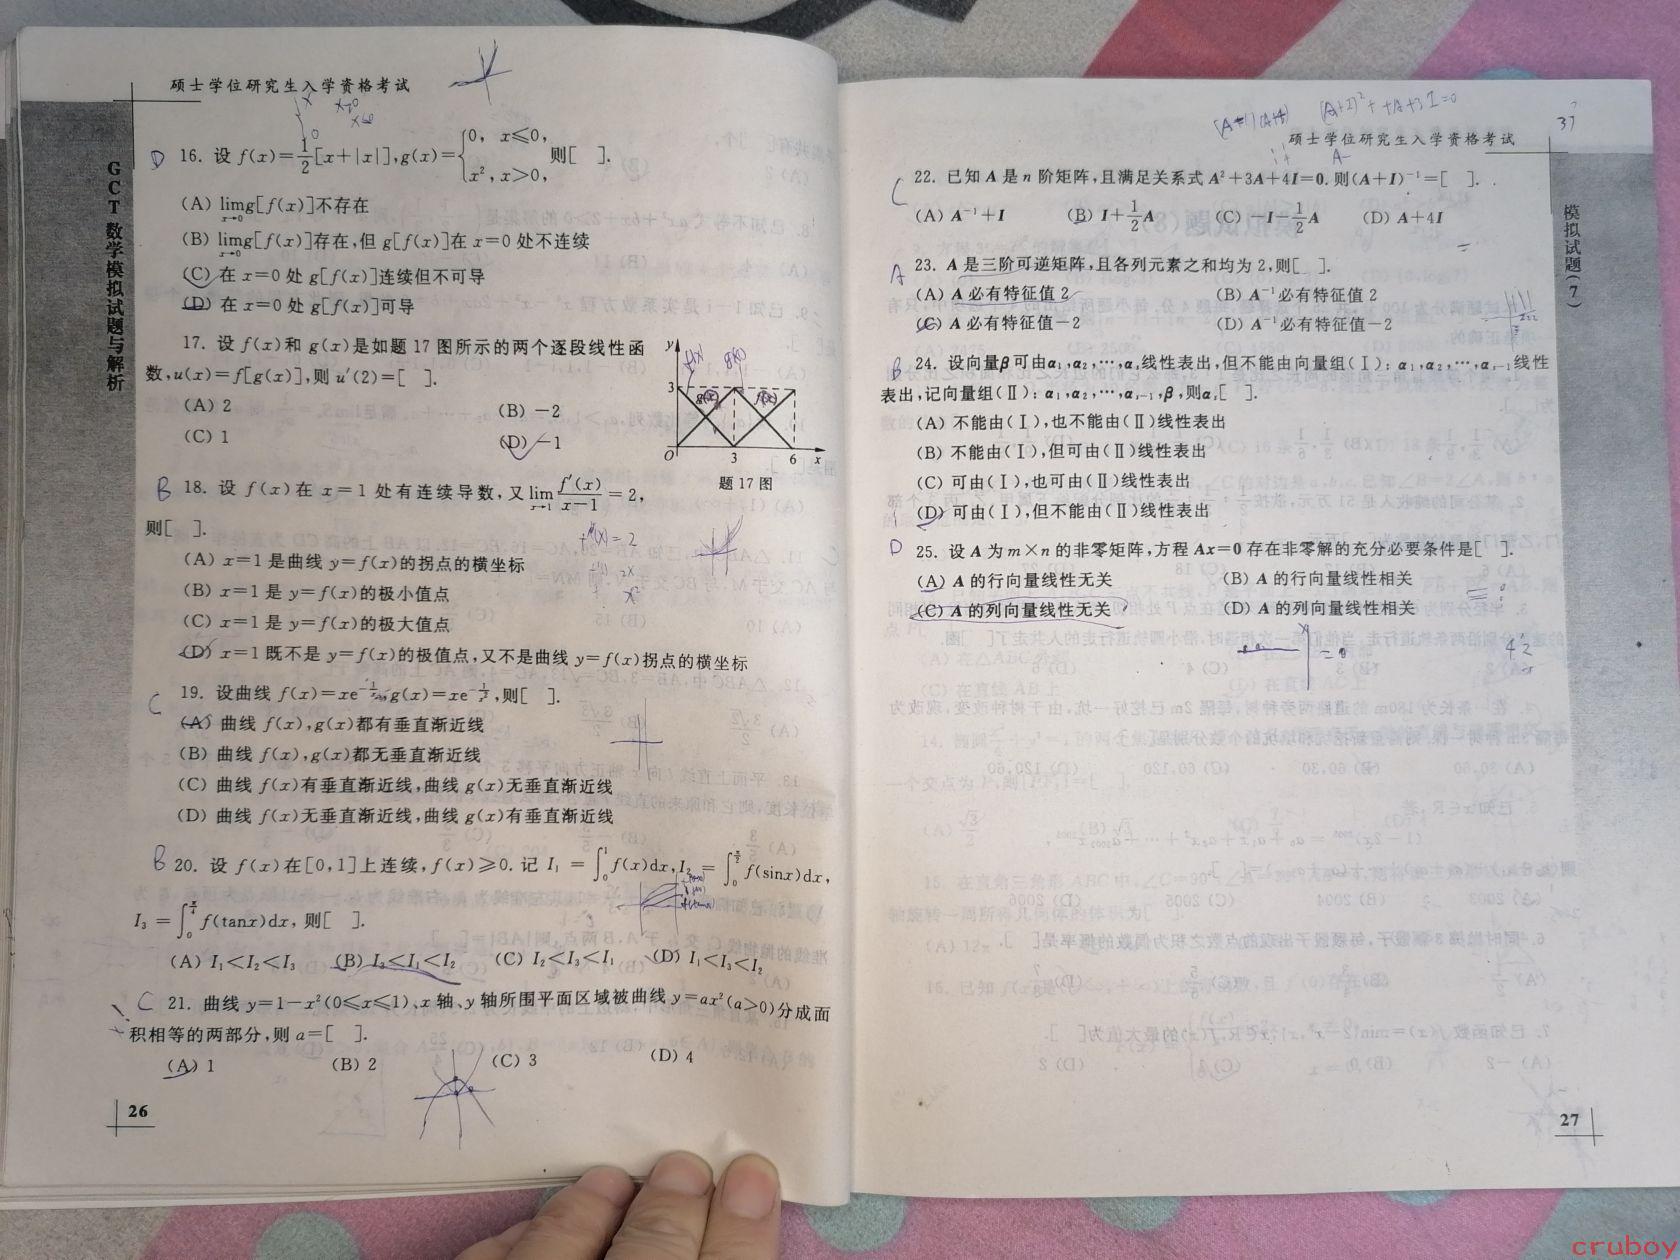 硕士学位研究生入学资格考试
GCT 数学模拟试题与解析
D 16. 设 f(x)=1/2[x+|x|],g(x)={0, x≤0, x², x>0, 则[ ].
(A) lim_{x→0} g[f(x)]不存在
(B) lim_{x→0} g[f(x)]存在,但 g[f(x)]在 x=0 处不连续
(C) 在 x=0 处 g[f(x)]连续但不可导
(D) 在 x=0 处 g[f(x)]可导
17. 设 f(x)和 g(x)是如题 17 图所示的两个逐段线性函
数,u(x)=f[g(x)],则 u′(2)=[ ].
(A) 2 (B) −2
(C) 1 (D) −1
y
3
f(x) g(x)
g(x) f(x)
O 3 6 x
题 17 图
B 18. 设 f(x)在 x=1 处有连续导数,又 lim_{x→1} f′(x)/(x−1) = 2,
则[ ].
(A) x=1 是曲线 y=f(x)的拐点的横坐标
(B) x=1 是 y=f(x)的极小值点
(C) x=1 是 y=f(x)的极大值点
(D) x=1 既不是 y=f(x)的极值点,又不是曲线 y=f(x)拐点的横坐标
C 19. 设曲线 f(x)=xe^{−1/x},g(x)=xe^{−1/x²},则[ ].
(A) 曲线 f(x),g(x)都有垂直渐近线
(B) 曲线 f(x),g(x)都无垂直渐近线
(C) 曲线 f(x)有垂直渐近线,曲线 g(x)无垂直渐近线
(D) 曲线 f(x)无垂直渐近线,曲线 g(x)有垂直渐近线
B 20. 设 f(x)在[0,1]上连续,f(x)≥0. 记 I₁ = ∫₀¹ f(x)dx, I₂ = ∫₀^{π/2} f(sinx)dx,
I₃ = ∫₀^{π/4} f(tanx)dx, 则[ ].
(A) I₁<I₂<I₃ (B) I₃<I₁<I₂ (C) I₂<I₃<I₁ (D) I₁<I₃<I₂
C 21. 曲线 y=1−x²(0≤x≤1)、x 轴、y 轴所围平面区域被曲线 y=ax²(a>0)分成面
积相等的两部分,则 a=[ ].
(A) 1 (B) 2 (C) 3 (D) 4
26
硕士学位研究生入学资格考试
模拟试题(7)
C 22. 已知 A 是 n 阶矩阵,且满足关系式 A²+3A+4I=0. 则(A+I)⁻¹=[ ].
(A) A⁻¹+I (B) I+1/2A (C) −I−1/2A (D) A+4I
A 23. A 是三阶可逆矩阵,且各列元素之和均为 2,则[ ].
(A) A 必有特征值 2 (B) A⁻¹必有特征值 2
(C) A 必有特征值−2 (D) A⁻¹必有特征值−2
B 24. 设向量β可由α₁,α₂,⋯,αₛ线性表出,但不能由向量组(Ⅰ): α₁,α₂,⋯,αₛ₋₁线性
表出,记向量组(Ⅱ): α₁,α₂,⋯,αₛ₋₁,β,则αₛ[ ].
(A) 不能由(Ⅰ),也不能由(Ⅱ)线性表出
(B) 不能由(Ⅰ),但可由(Ⅱ)线性表出
(C) 可由(Ⅰ),也可由(Ⅱ)线性表出
(D) 可由(Ⅰ),但不能由(Ⅱ)线性表出
D 25. 设 A 为 m×n 的非零矩阵,方程 Ax=0 存在非零解的充分必要条件是[ ].
(A) A 的行向量线性无关 (B) A 的行向量线性相关
(C) A 的列向量线性无关 (D) A 的列向量线性相关
27
cruboy